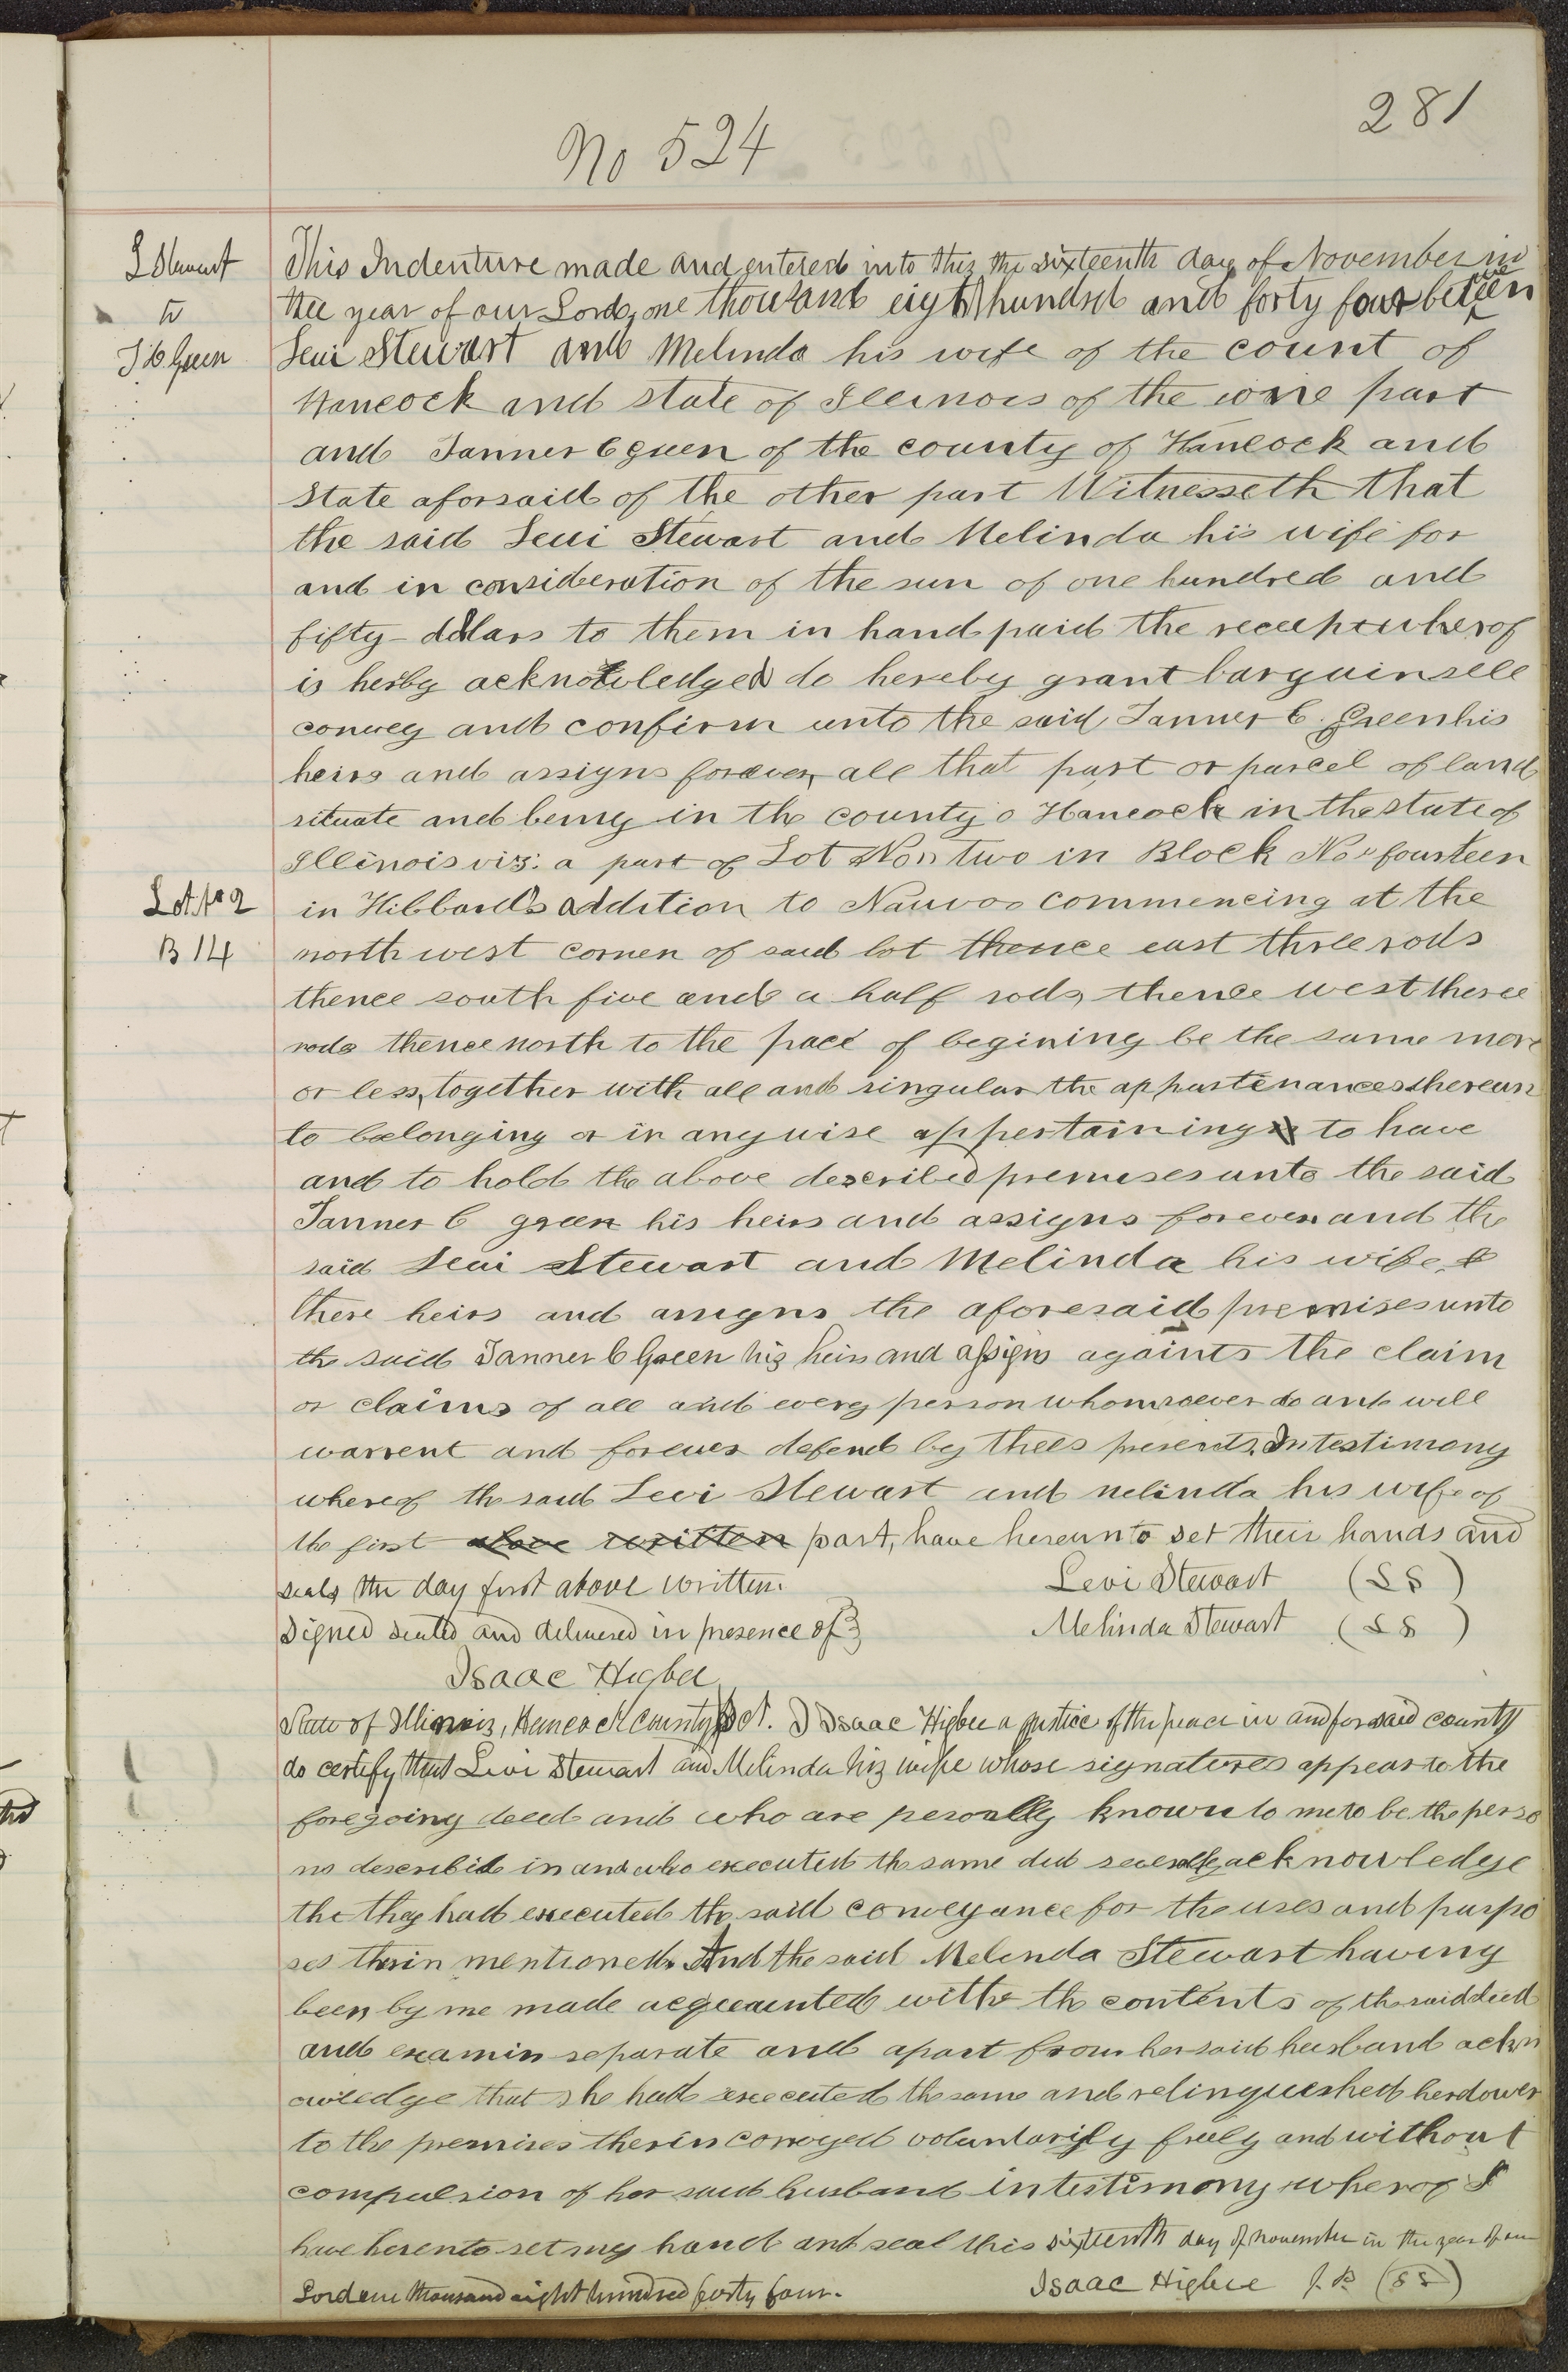 281
No 524
L Stewart
to
T C Green
This Indenture made and entered into this the sixteenth day of November in
the year of our Lord, one thousand eight hundred and forty four between
Levi Stewart and Melinda his wife of the count of
Hancock and state of Illinois of the one part
and Tanner C green of the county of Hancock and
State aforsaid of the other part Witnesseth that
the said Levi Stewart and Melinda his wife for
and in consideration of the sun of one hundred and
fifty dollars to them in hand paid the receept wherof
is herby acknowledged do hereby grant bargain sell
convey and confirm unto the said Tanner C. Green his
heirs and assigns forever, all that part or parcel of land
situate and being in the county o Hancock in the state of
Illinois viz: a part of Lot No two in Block No fourteen
Lot No 2
B 14
in Hibbard's addition to Nauvoo commencing at the
north west corner of said lot thence east three rods
thence south five and a half rods, thence west theree
rods thence north to the pace of begining be the same more
or less, together with all and singular the appurtenances thereun
to belonging or in anywise appertaining to have
and to hold the above described premises unto the said
Tanner C green his heirs and assigns forever and the
said Levi Stewart and Melinda his wife &
there heirs and assigns the aforesaid premises unto
the said Tanner C Green his heirs and assigns againts the claim
or claims of all and every person whomsoever do and will
warrent and forever defend by thees presents. In testimony
whereof the said Levi Stewart and melinda his wife of
the first above written part, have hereunto set their hands and
seals the day first above written. Levi Stewart (LS)
Signed sealed and delivered in presence of } Melinda Stewart (LS)
Isaac Higbee
State of Illinois, Hancock County Sct. I Isaac Higbee a justice of the peace in and for said county
do certify that Levi Stewart and Melinda his wife whose signatures appear to the
foregoing deed and who are personally known to me to be the perso
ns described in and who executed the same did severally acknowledge
the they had executed the said conveyance for the uses and purpo
ses therin mentioned. And the said Melinda Stewart having
been by me made acquainted with the contents of the said deed
and examin separate and apart from her said husband ackn
owledge that she had executed the same and relinqueshed her dower
to the premises therin convayed voluntarily freely and without
compulsion of her said husband in testimony wherof I
have herento set my hand and seal this sixteenth day of november in the year of our
Lord one thousand eight hundred forty four. Isaac Higbee J. P. (LS)